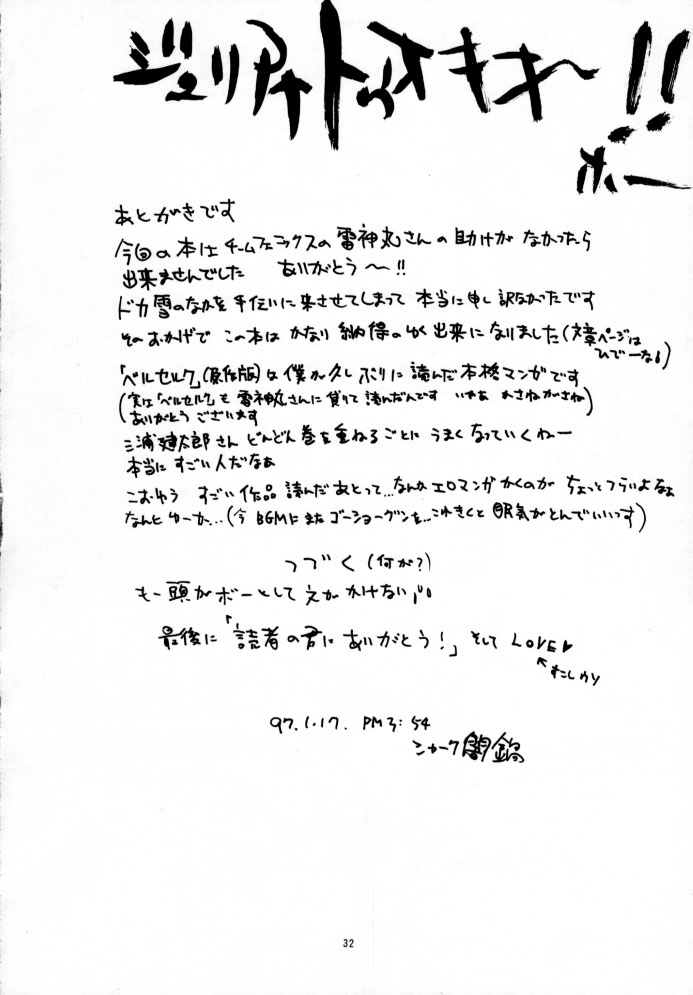 ジュリアナトゥオキキ〜!!
ボー
あとがきです
今回の本はチームフェニックスの雷神丸さんの助けが なかったら
出来ませんでした ありがとう〜!!
ドカ雪のなかを手伝いに来させてしまって 本当に申し訳なかったです
そのおかげで この本は かなり 納得のゆく出来になりました(文章ページは
ひでーなぁ)
「ベルセルク」(原作版)は僕が久しぶりに読んだ本格マンガです
(実は「ベルセルク」も 雷神丸さんに貸りて 読んだんです いやぁ かさねがさね)
(ありがとう ございます)
三浦建太郎さん どんどん巻を重ねるごとに うまくなっていくねー
本当に すごい人だなぁ
こおゆう すごい作品 読んだあとって...なんか エロマンガ かくのが ちょっとつらいよなぁ
なんとゆーか...(今 BGMにまたゴーショーグンを...これきくと 眠気がとんでいいっす)
つづく(何が?)
もー頭がボーとして 文が かけない
最後に「読者の君に ありがとう!」そして LOVE♥
97.1.17. PM3:54
シャーク闇鍋
32